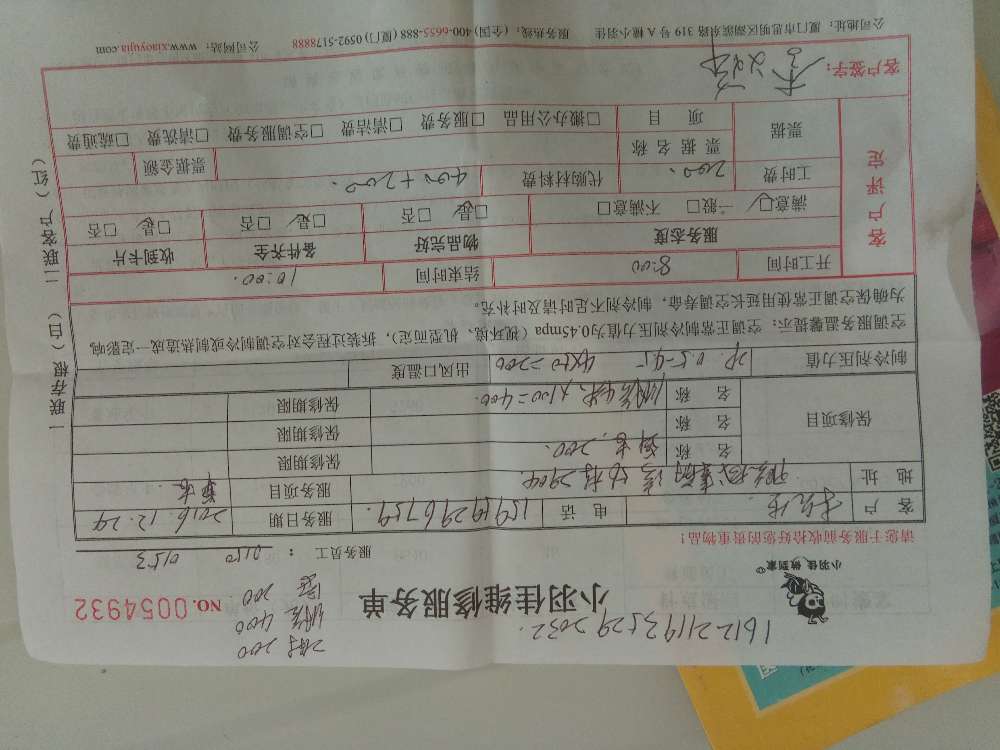 1612211935292032.
小羽佳 做到家
小羽佳维修服务单
NO. 0054932
200
400
200
服务员工： 0150 0153
请您于服务前收拾好您的贵重物品！
客 户 电 话 15919296759. 服务日期 2016.12.24
地 址 2904. 服务项目
保修项目 名 称 200. 保修期限
名 称 保修期限
名 称 ×100=400. 保修期限
制冷剂压力值 2P. 0.5-4.5 4×50=200 出风口温度
空调服务温馨提示：空调正常制冷剂压力值为0.45mpa（视环境、机型而定），拆装过程会对空调制冷或制热造成一定影响，
为确保空调正常使用延长空调寿命，制冷剂不足时请及时补充。
开工时间 8:00 结束时间 10:00.
客户评定
服务态度 物品完好 备件齐全 收到卡片
满意□ 一般□ 不满意□ □是 □否 □是 □否 □是 □否
工时费 200. 代购材料费 400+200. 票据金额
票据 票据名称
项 目 □搬办公用品 □服务费 □清洁费 □空调服务费 □清洗费 □疏通费
客户签字：
公司地址：厦门市思明区湖滨东路 319 号 A 楼小羽佳 服务热线：（全国）400-6655-888（厦门）0592-5178888 公司网站：www.xiaoyujia.com
一联存根（白） 二联客户（红）